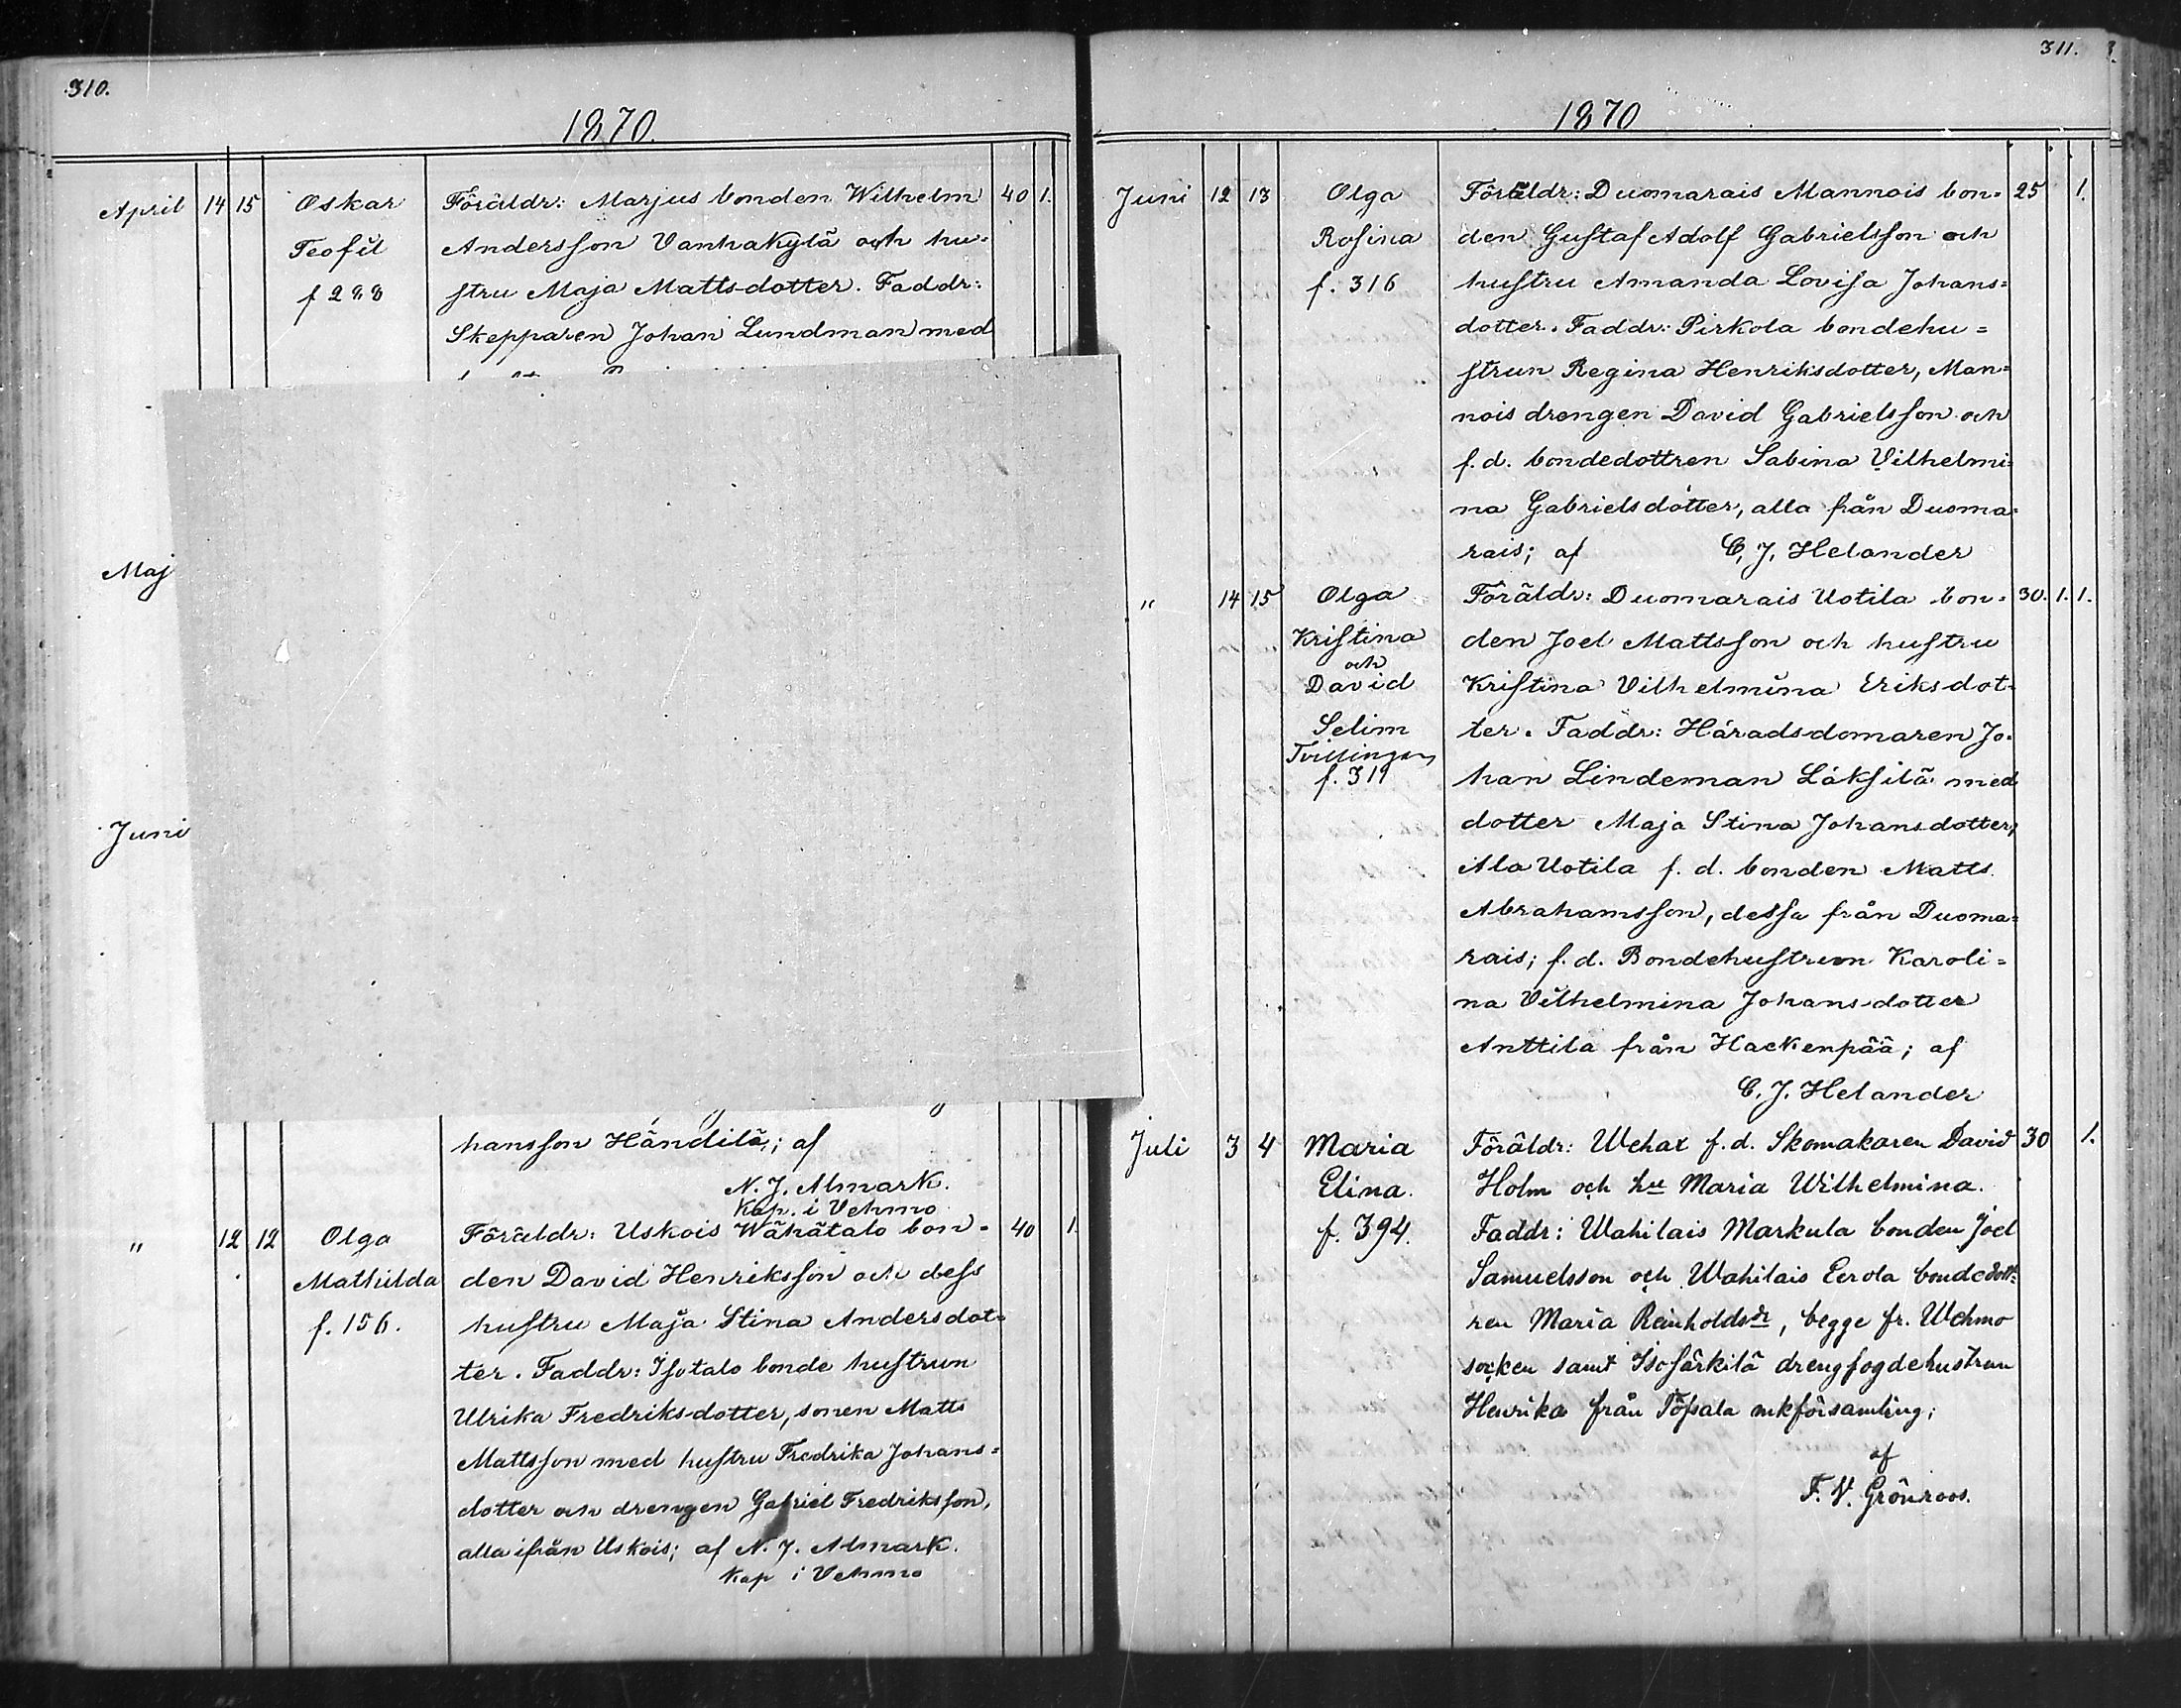 310.
1870.
April 14 15 Oskar Föräldr: Marjus bonden Wilhelm 40 1.
Teofil Andersson Vanhakylä och hu-
f 288 stru Maja Mattsdotter. Faddr:
Skepparen Johan Lundman med
Maj
Juni
hansson Händilä; af
N. J. Almark.
Kap. i Vehmo
" 12 12 Olga Föräldr: Uskois Wähätalo bon- 40 1.
Mathilda den David Henriksson och dess
f. 156. hustru Maja Stina Andersdot-
ter. Faddr: Isotalo bonde hustrun
Ulrika Fredriksdotter, sonen Matts
Mattsson med hustru Fredrika Johans=
dotter och drengen Gabriel Fredriksson,
alla ifrån Uskois; af N. J. Almark.
Kap i Vehmo
311.
1870
Juni 12 13 Olga Föräldr: Duomarais Mannois bon= 25 1.
Rosina den Gustaf Adolf Gabrielsson och
f. 316 hustru Amanda Lovisa Johans=
dotter. Faddr: Pirkola bondehu=
strun Regina Henriksdotter, Man=
nois drengen David Gabrielsson och
f. d. bondedottren Sabina Vilhelmi=
na Gabrielsdotter, alla från Duoma=
rais; af C. J. Helander
" 14 15 Olga Föräldr: Duomarais Uotila bon= 30. 1. 1.
Kristina den Joel Mattsson och hustru
och
David Kristina Vilhelmina Eriksdot-
Selim ter. Faddr: Häradsdomaren Jo-
Tvillingar
f. 311 han Lindeman Läksilä med
dotter Maja Stina Johansdotter,
Ala Uotila f. d. bonden Matts
Abrahamsson, dessa från Duoma=
rais; f. d. Bondehustrun Karoli=
na Vilhelmina Johansdotter
Anttila från Hackenpää; af
C. J. Helander
Juli 3 4 Maria Föräldr: Wehax f. d. Skomakaren David 30 1.
Elina. Holm och hu Maria Wilhelmina.
f. 394. Faddr: Wahilais Markula bonden Joel
Samuelsson och Wahilais Eerola bondedott=
ren Maria Reinholdsdr, begge fr. Wehmo
socken samt Isosärkilä drengfogdehustrun
Henrika från Töfsala mkförsamling;
af
F. V. Grönroos.